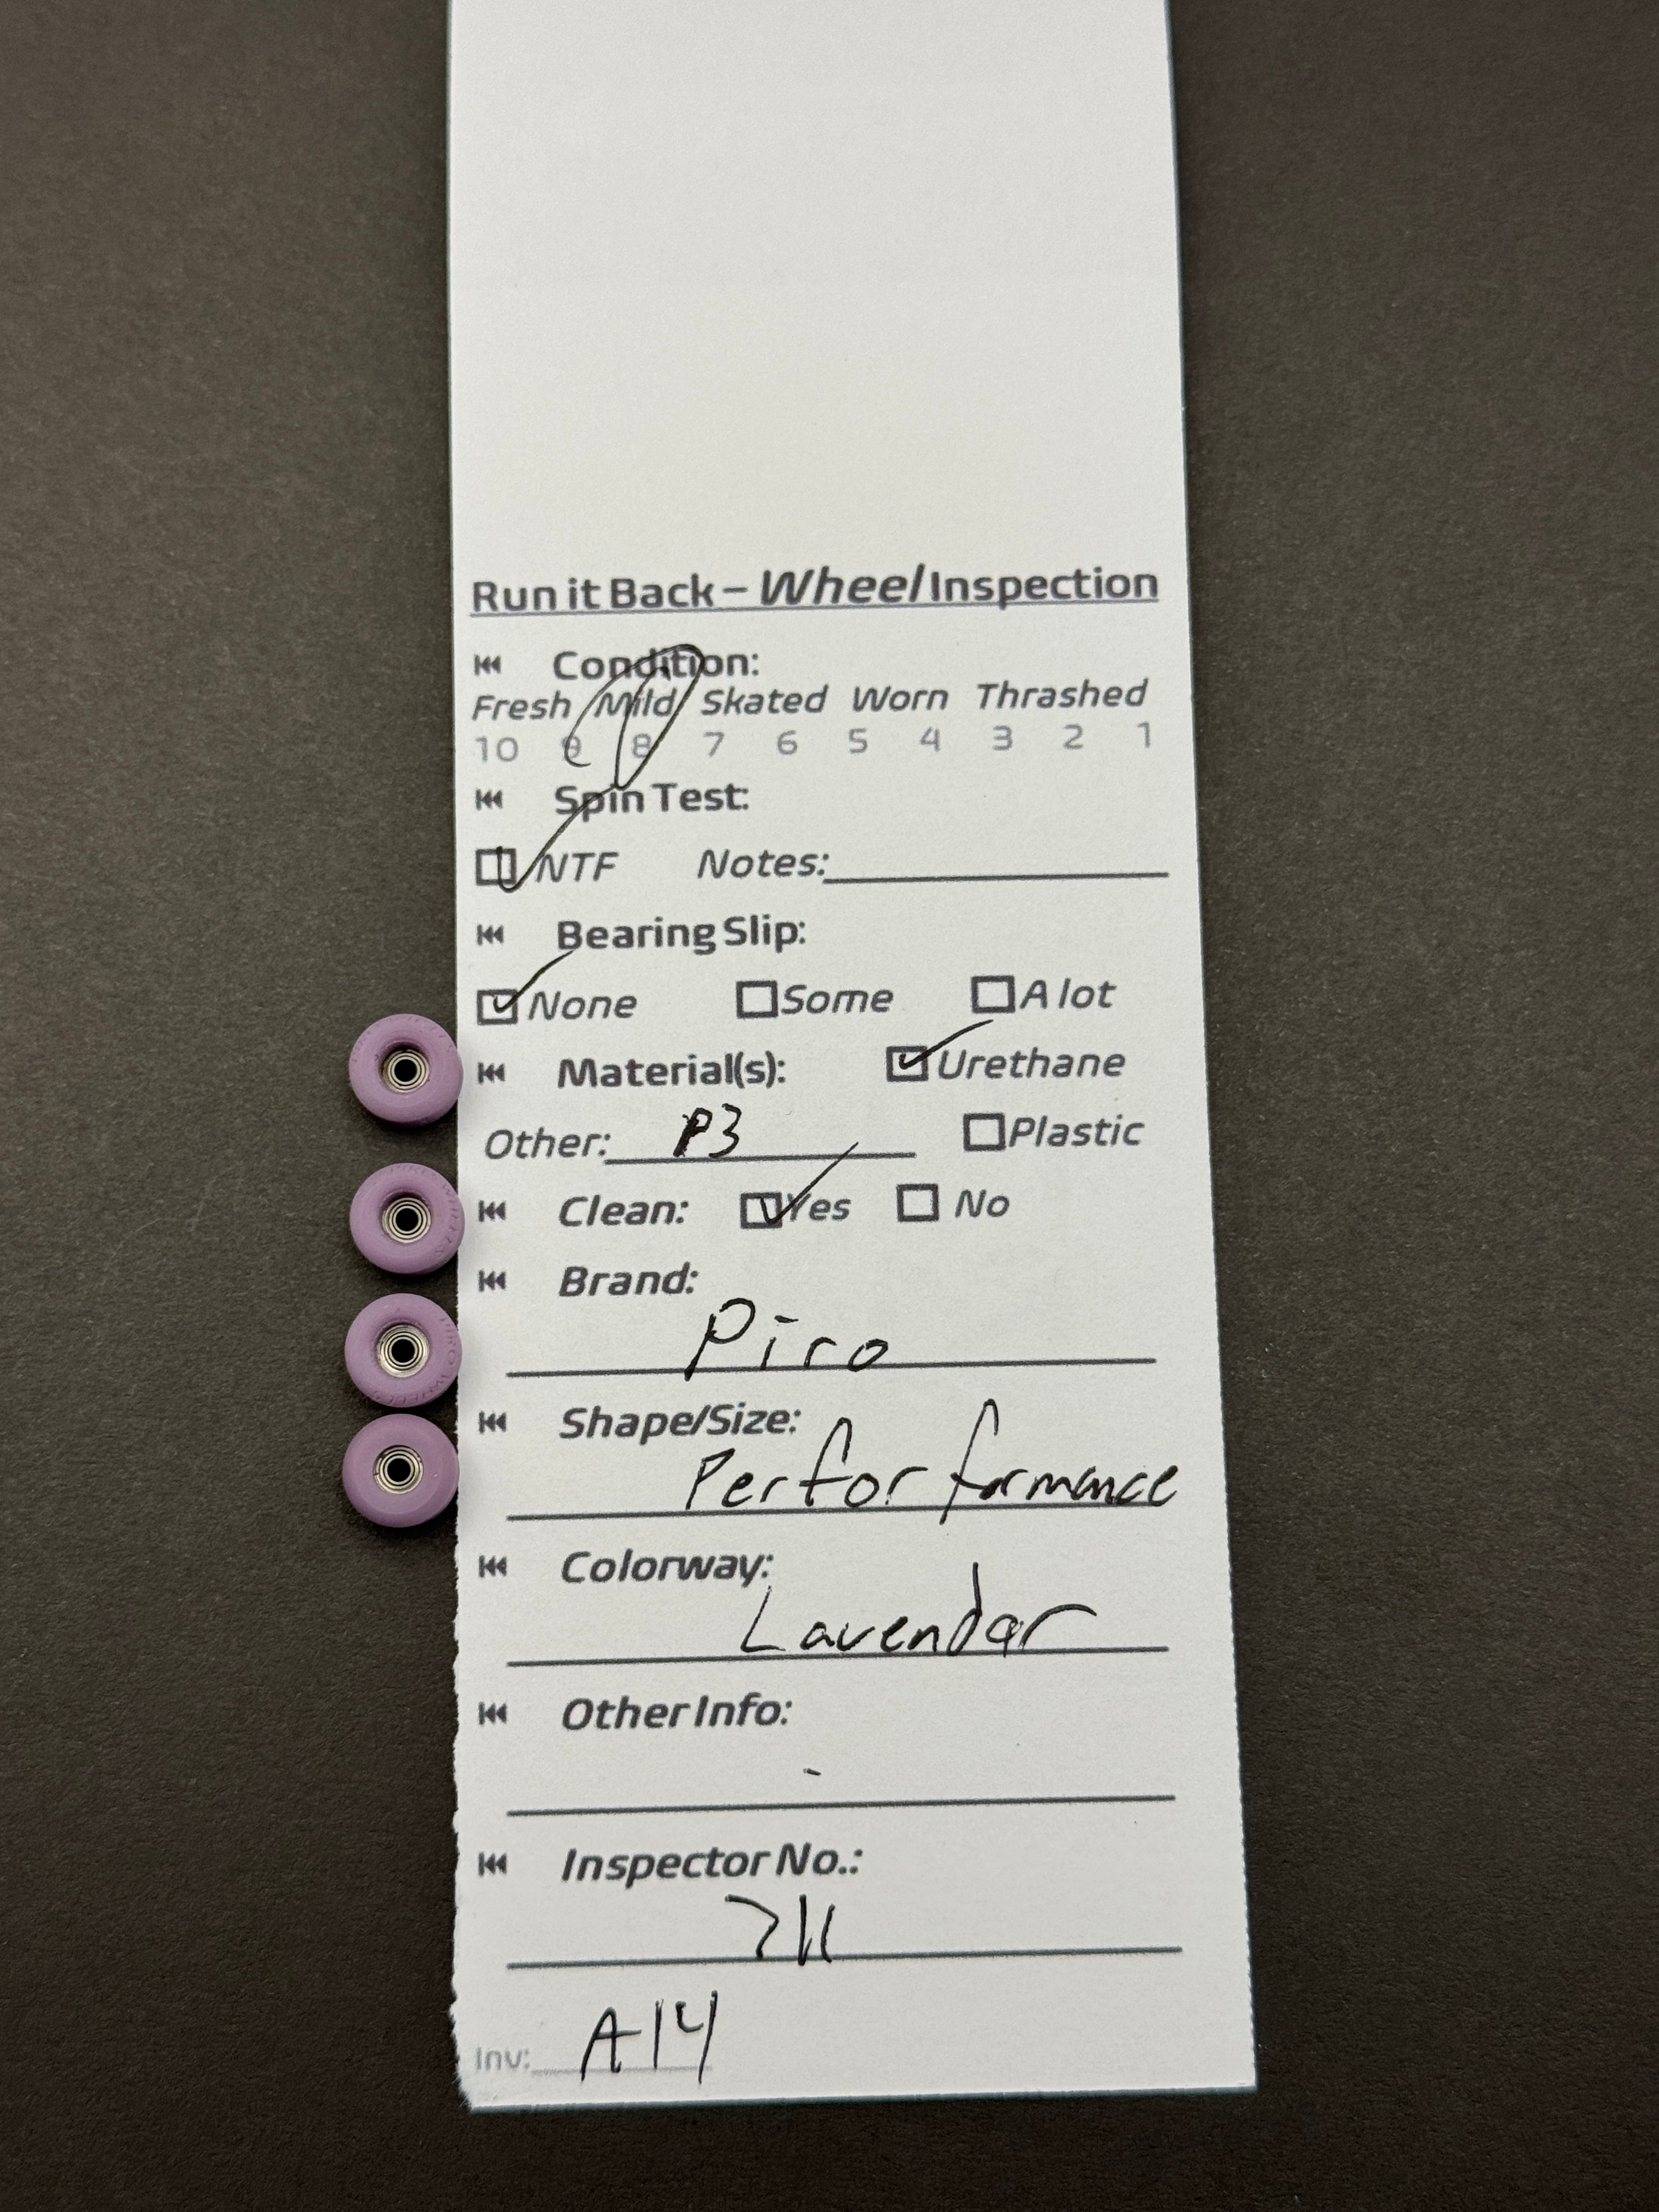 Run it Back – Wheel Inspection
Condition:
Fresh Mild Skated Worn Thrashed
10 9 8 7 6 5 4 3 2 1
Spin Test:
NTF Notes:
Bearing Slip:
None Some A lot
Material(s): Urethane
Other: P3 Plastic
Clean: Yes No
Brand:
Piro
Shape/Size:
Perfor formance
Colorway:
Lavendar
Other Info:
-
Inspector No.:
711
Inv: A14